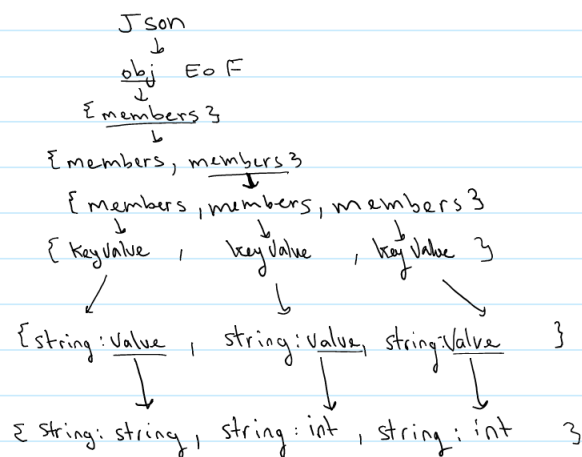 Json
obj EOF
{members}
{members, members}
{members, members, members}
{keyValue , keyValue , keyValue }
{string: Value , string: Value, string:Value }
{String: string, string: int , string: int }